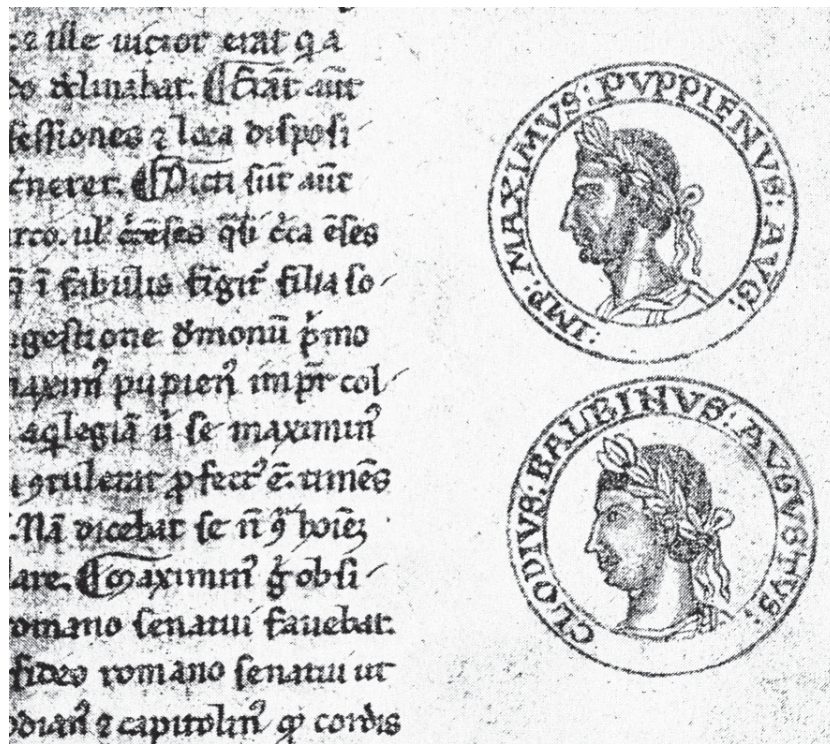 ⁊ ille uictor erat q a
do declinabat. ¶ Erāt aūt
feſſiones ⁊ loca diſpoſi
neret. ¶ Dicti ſūt aūt
rco. ul' cca
q̄ i fabulis fīgit filia ſo
geſtione demonū pͥmo
maxim⁹ pupien⁹ imp̄r col
aqlegiā ſe maximin⁹
ꝯtulerat ꝓfect⁹ ē. timēs
Nā dicebat ſe n̄ hoiēꝫ
lare. ¶ Maximin⁹ g̊ obſi
romano ſenatui fauebat.
romano ſenatui ut
odian⁹ ⁊ capitolin⁹ ꝙ cordis
:IMP: MAXIMVS: PVPPIENVS: AVG:
CLODIVS: BALBINVS: AVGVSTVS: